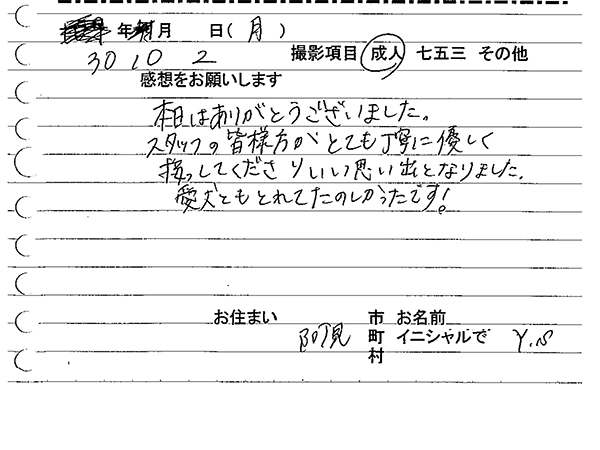 年 月 日(月)
30 10 2 撮影項目 成人 七五三 その他
感想をお願いします
本日はありがとうございました。
スタッフの皆様方がとても丁寧に優しく
接してくださりいい思い出となりました。
愛犬ともとれてたのしかったです!
お住まい 阿見 市町村 お名前 イニシャルで Y.N